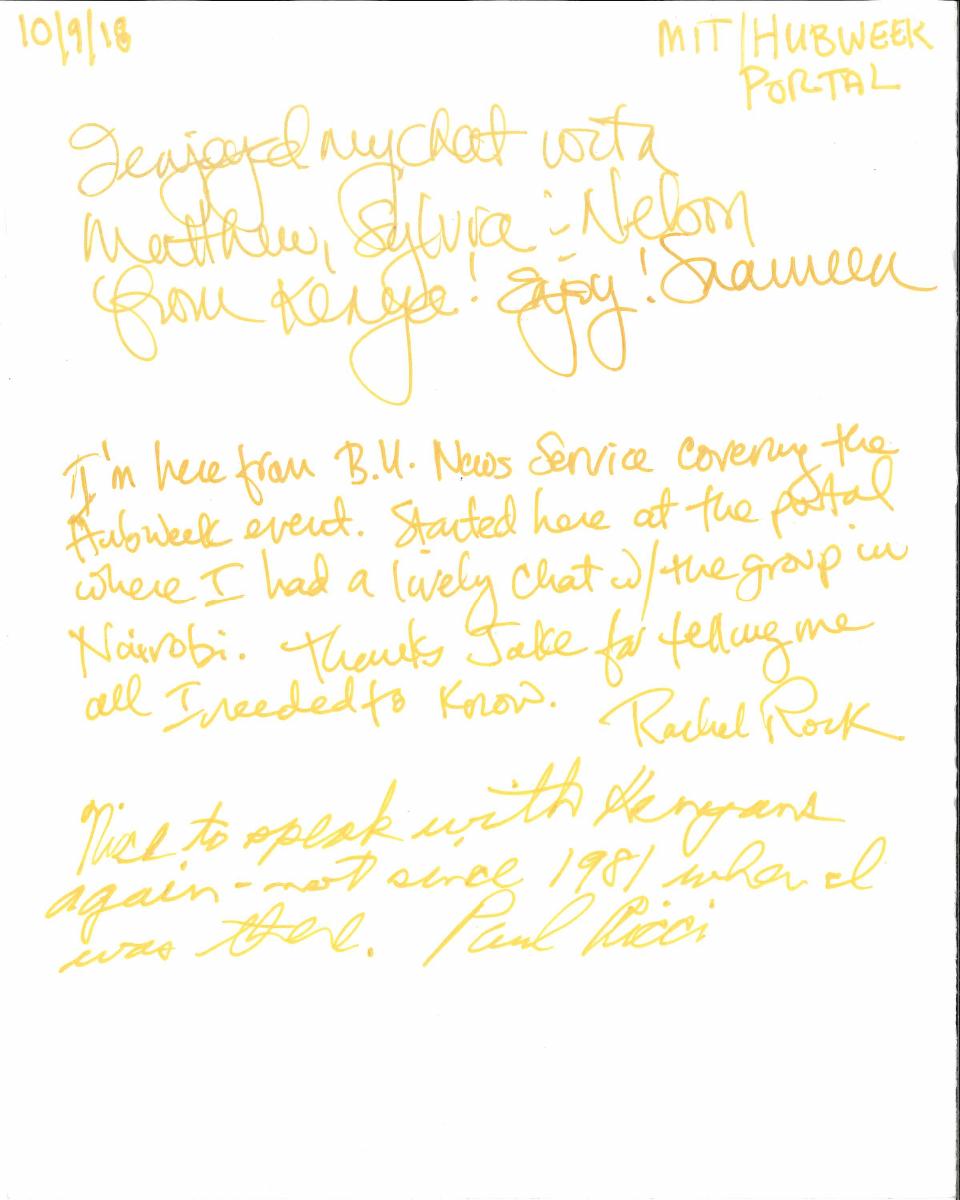 10/9/18
MIT/HUBWEEK
PORTAL
I enjoyed my chat with
Matthew, Sylvia & Nelson
from Kenya! Enjoy!
I'm here from B.U. News Service covering the
Hubweek event. Started here at the portal
where I had a lively chat w/ the group in
Nairobi. Thanks Jake for telling me
all I needed to know.
Rachel Rock
Nice to speak with Kenyans
again - not since 1981 when I
was there. Paul Ricci